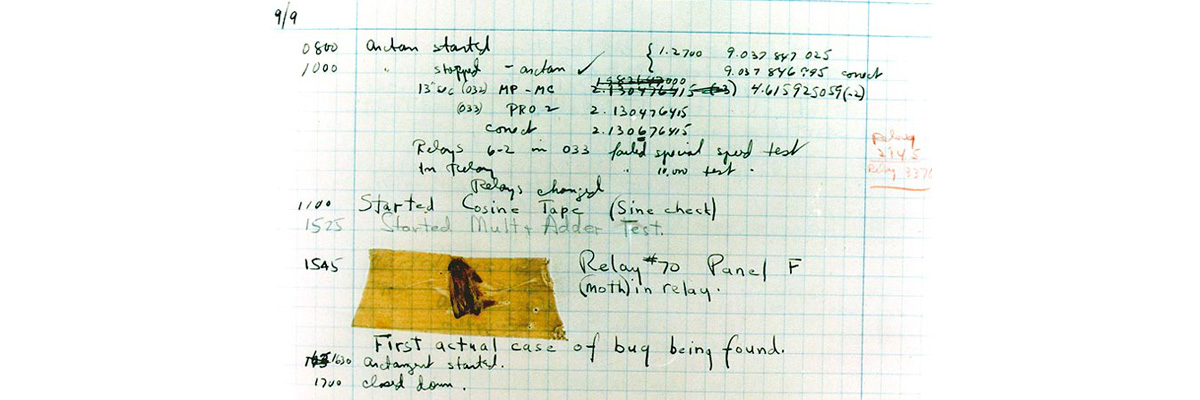 9/9
0800 Antan started { 1.2700 9.037 847 025
1000 " stopped - antan ✓ 9.037 846 995 conect
13"uc (032) MP - MC 2.130476415 (-3) 4.615925059(-2)
(033) PRO 2 2.130476415
conect 2.130676415
Relays 6-2 in 033 failed special speed test
In Relay " 10,000 test.
Relay
2145
Relay 3370
Relays changed
1100 Started Cosine Tape (Sine check)
1525 Started Mult+ Adder Test.
1545 Relay #70 Panel F
(moth) in relay.
First actual case of bug being found.
1630 Antangent started.
1700 closed down.